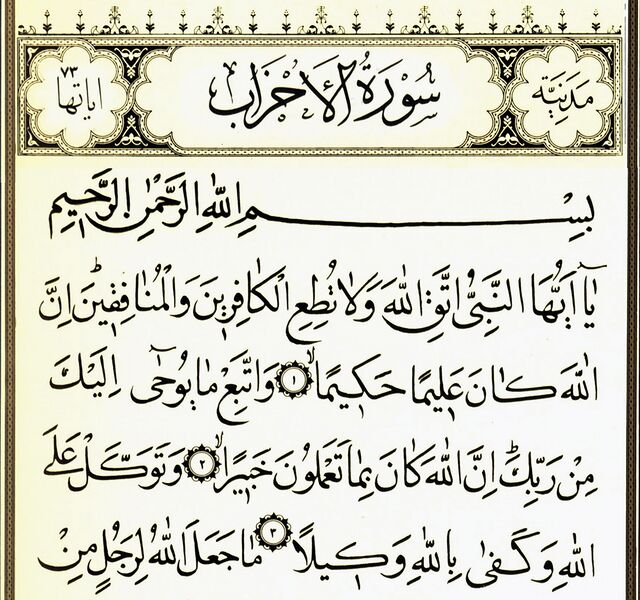 مدنية سورة الأحزاب اياتها ٧٣
بِسْمِ اللّٰهِ الرَّحْمٰنِ الرَّحِيمِ
يَٓا اَيُّهَا النَّبِيُّ اتَّقِ اللّٰهَ وَلَا تُطِعِ الْكَافِرِينَ وَالْمُنَافِقِينَۜ اِنَّ
اللّٰهَ كَانَ عَلِيمًا حَكِيمًاۙ ١ وَاتَّبِعْ مَا يُوحٰٓى اِلَيْكَ
مِنْ رَبِّكَۜ اِنَّ اللّٰهَ كَانَ بِمَا تَعْمَلُونَ خَبِيرًاۙ ٢ وَتَوَكَّلْ عَلَى
اللّٰهِ وَكَفٰى بِاللّٰهِ وَكِيلًا ٣ مَا جَعَلَ اللّٰهُ لِرَجُلٍ مِنْ